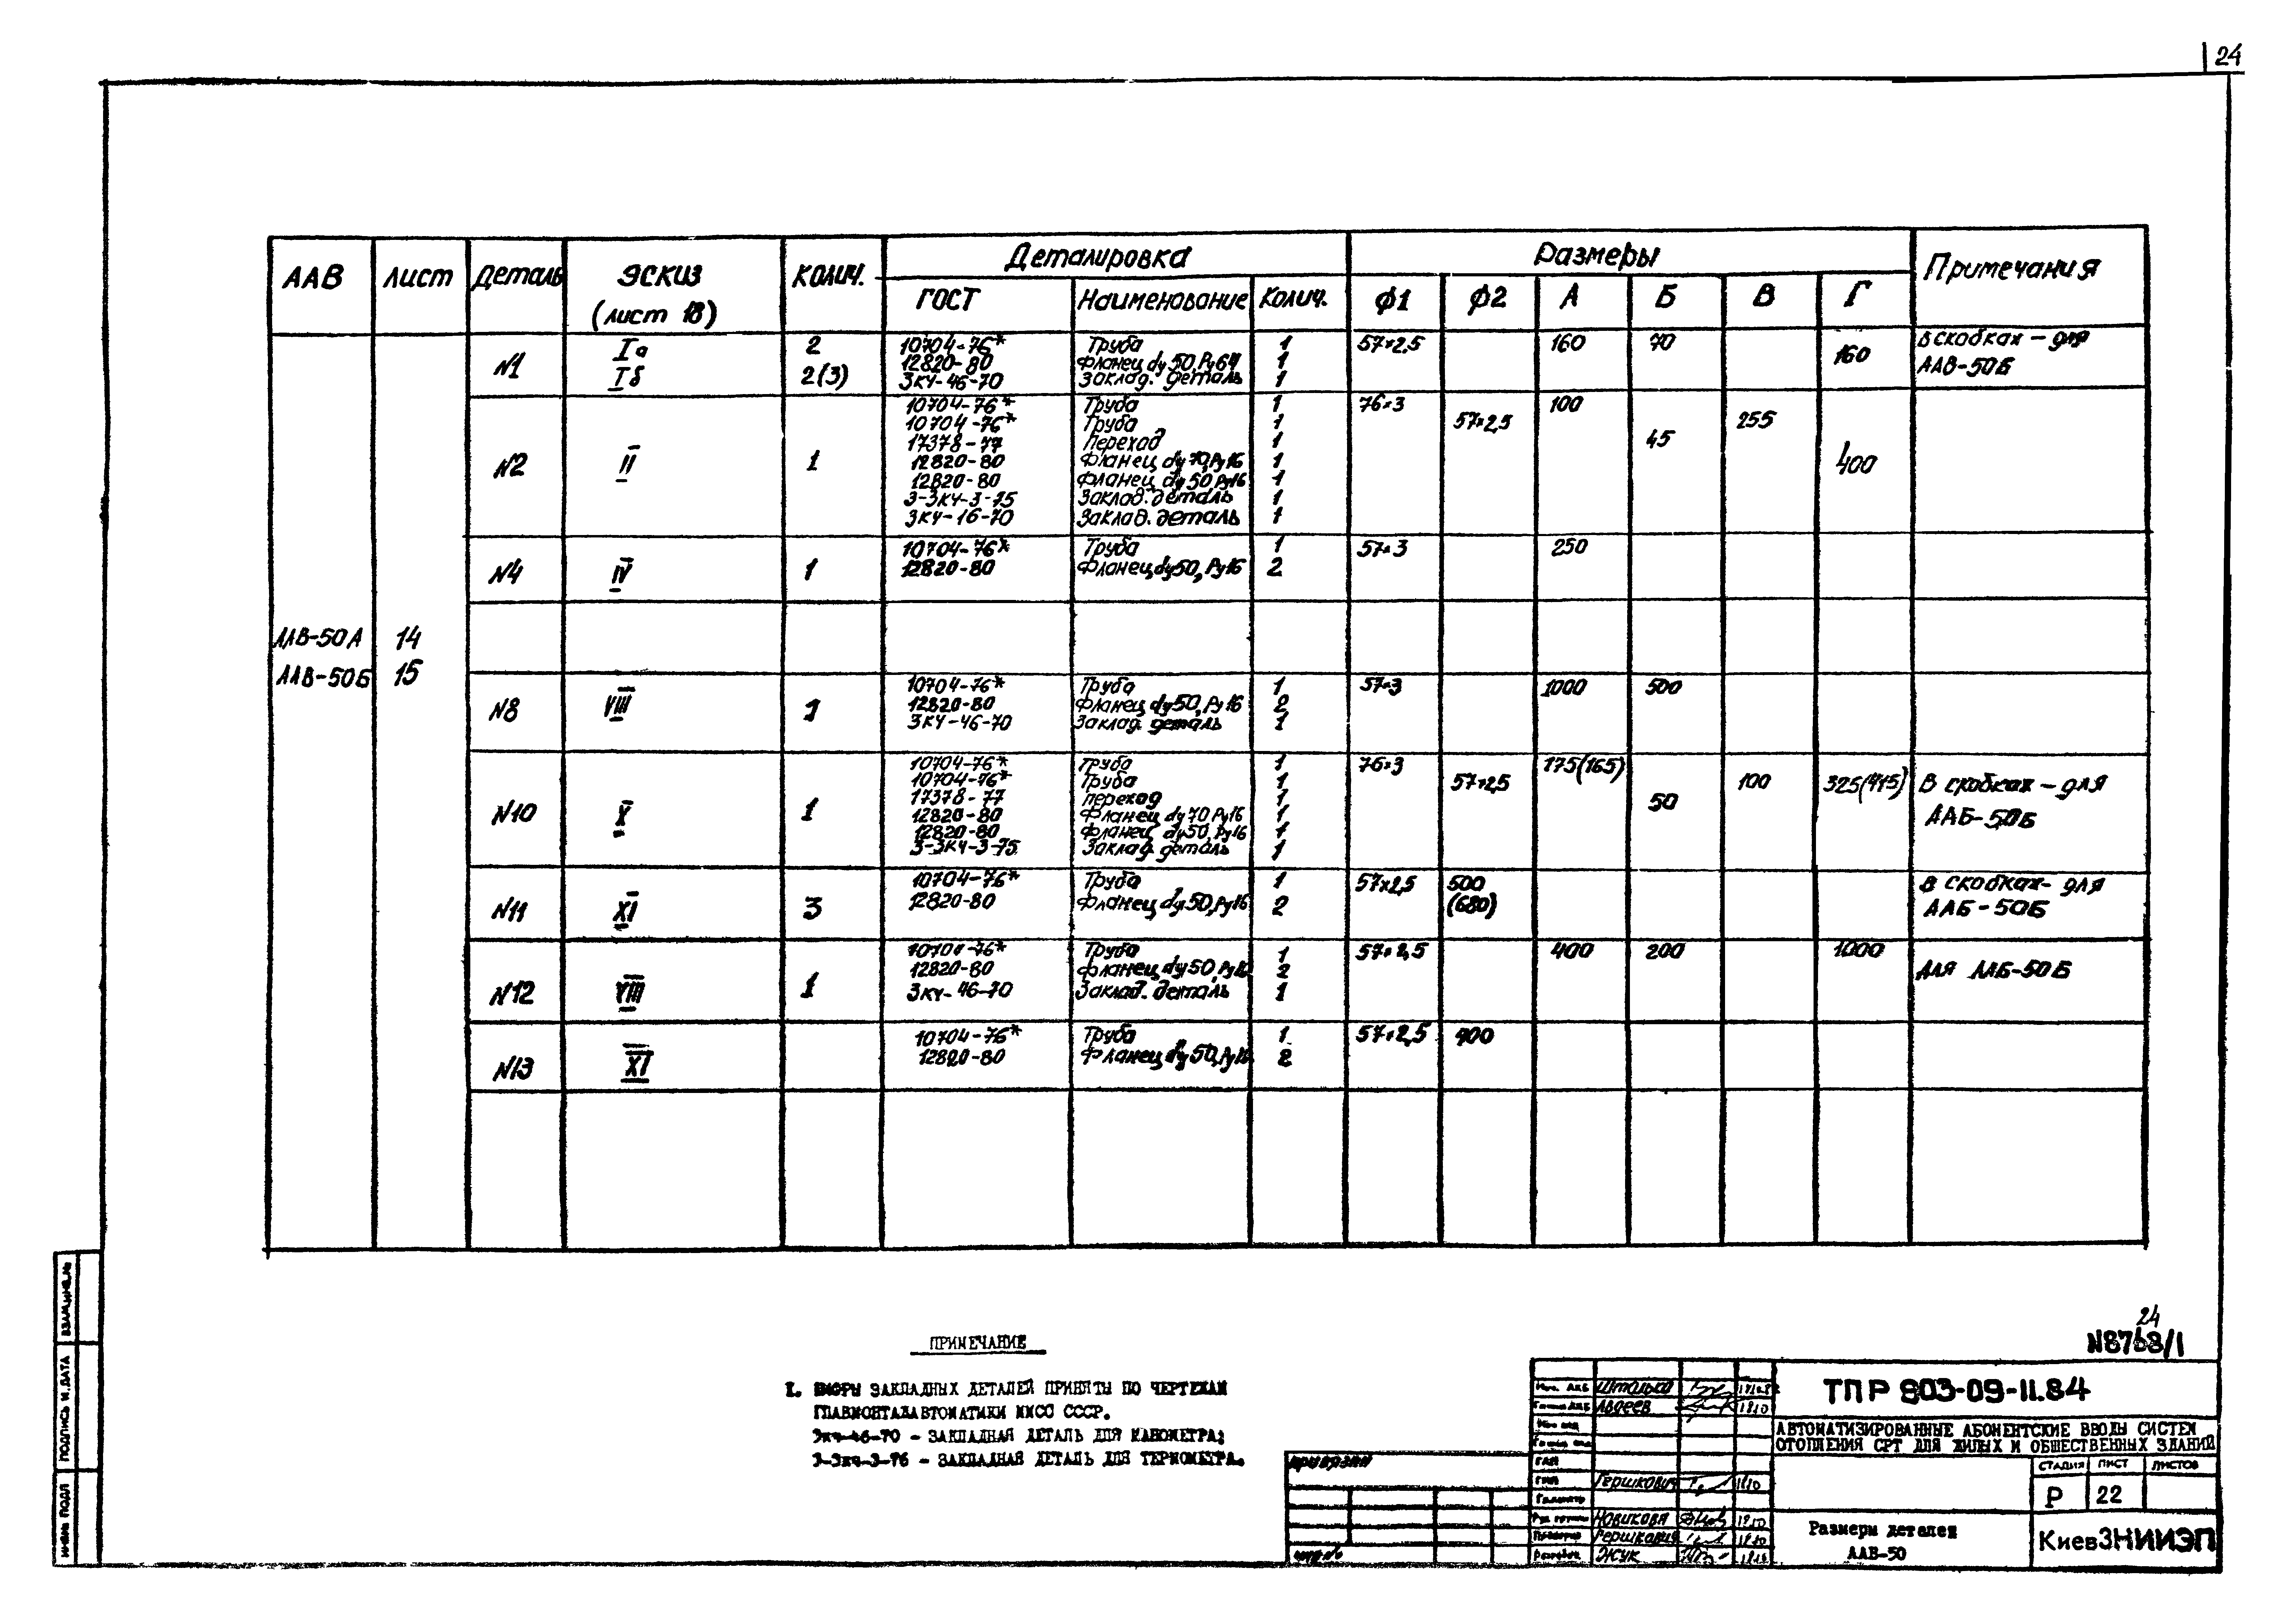 24
ААВ Лист Деталь Эскиз (лист 18) Колич. Деталировка Размеры Примечания
ГОСТ Наименование Колич. Ф1 Ф2 А Б В Г
ААВ-50А 14
ААВ-50Б 15
N1 Iа 2 10704-76* Труба 1 57×2,5 160 70 160 В скобках – для
Iб 2(3) 12820-80 Фланец dу 50, Ру64 1 ААВ-50Б
ЗКЧ-46-70 Заклад. деталь 1
N2 II 1 10704-76* Труба 1 76×3 100
10704-76* Труба 1 57×2,5 255
17378-77 Переход 1 45
12820-80 Фланец dу 70, Ру16 1 400
12820-80 Фланец dу 50, Ру16 1
3-ЗКЧ-3-75 Заклад. деталь 1
ЗКЧ-16-70 Заклад. деталь 1
N4 IV 1 10704-76* Труба 1 57×3 250
12820-80 Фланец dу50, Ру16 2
N8 VIII 1 10704-76* Труба 1 57×3 1000 500
12820-80 Фланец dу50, Ру16 2
ЗКЧ-46-70 Заклад. деталь 1
N10 X 1 10704-76* Труба 1 76×3 175(165)
10704-76* Труба 1 57×2,5 100 325(415) В скобках – для
17378-77 переход 1 50 ААБ-50Б
12820-80 Фланец dу 70 Ру16 1
12820-80 Фланец dу50, Ру16 1
3-ЗКЧ-3-75 Заклад. деталь 1
N11 XI 3 10704-76* Труба 1 57×2,5 500 В скобках- для
12820-80 Фланец dу50, Ру16 2 (680) ААБ-50Б
N12 VIII 1 10704-76* Труба 1 57×2,5 400 200 1000
12820-80 Фланец dу50, Ру16 2 Для ААБ-50Б
ЗКЧ-46-70 Заклад. деталь 1
N13 XI 10704-76* Труба 1 57×2,5 400
12820-80 Фланец dу50, Ру16 2
ПРИМЕЧАНИЕ
1. ШИФРЫ ЗАКЛАДНЫХ ДЕТАЛЕЙ ПРИНЯТЫ ПО ЧЕРТЕЖАМ
ГЛАВМОНТАЖАВТОМАТИКИ ММСС СССР.
ЗКЧ-46-70 – ЗАКЛАДНАЯ ДЕТАЛЬ ДЛЯ МАНОМЕТРА;
3-ЗКЧ-3-76 – ЗАКЛАДНАЯ ДЕТАЛЬ ДЛЯ ТЕРМОМЕТРА.
24
N8768/1
ТПР 903-09-11.84
АВТОМАТИЗИРОВАННЫЕ АБОНЕНТСКИЕ ВВОДЫ СИСТЕМ
ОТОПЛЕНИЯ СРТ ДЛЯ ЖИЛЫХ И ОБЩЕСТВЕННЫХ ЗДАНИЙ
СТАДИЯ ЛИСТ ЛИСТОВ
Р 22
Размеры деталей
ААВ-50
КиевЗНИИЭП
Нач. АКБ Шталько
Авдеев 1810
ГАП
ГИП Гершкович 1810
Рук. группы Новикова
Проверил Гершкович
Разработ. Жук
ПРИВЯЗАН
ИНВ №
ВЗАМ.ИНВ.№
ПОДПИСЬ И ДАТА
ИНВ.№ ПОДЛ